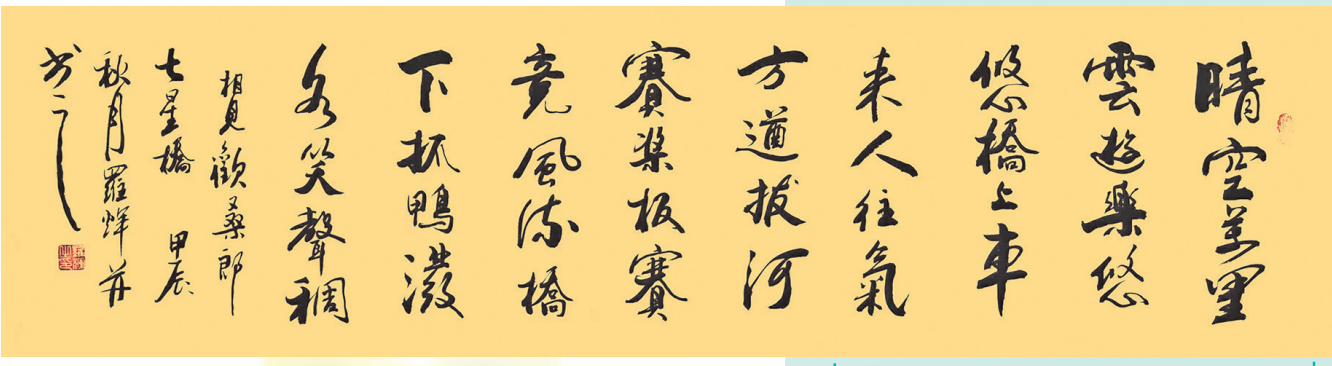 晴空萬里
雲遊樂悠
悠橋上車
来人往氣
方遒拔河
賽槳板賽
竞風流橋
下抓鴨潑
水笑聲稠
相見歡桑郎
七星橋 甲辰
秋月羅煇并
书之